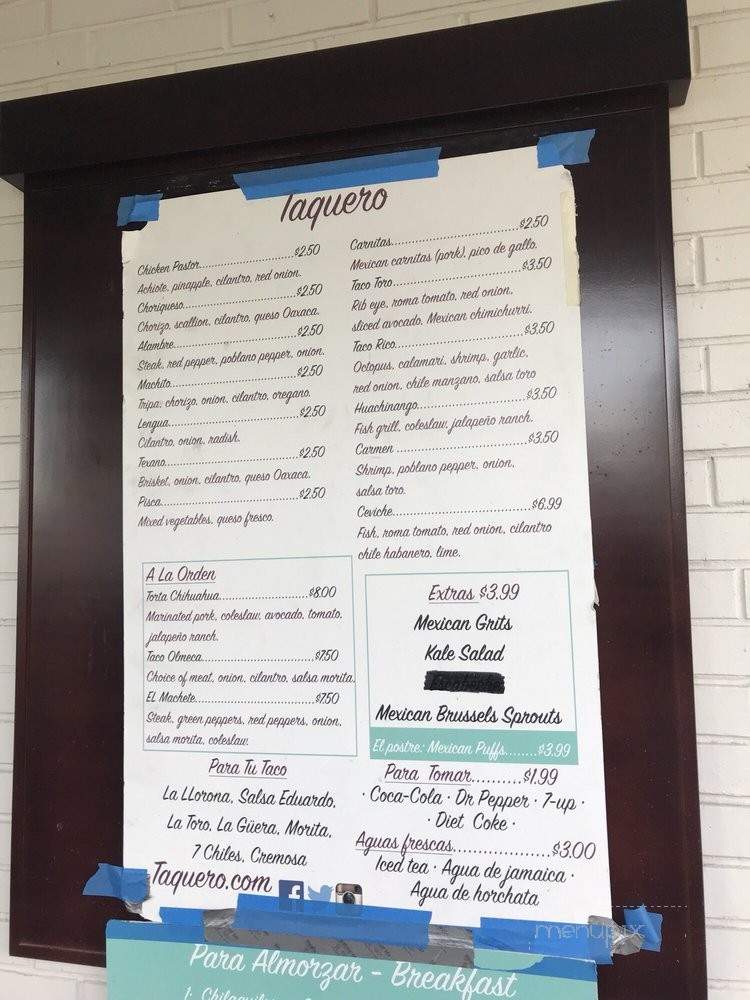 Taquero
Chicken Pastor..............................$2.50
Achiote, pinapple, cilantro, red onion.
Choriqueso..............................$2.50
Chorizo, scallion, cilantro, queso Oaxaca.
Alambre..............................$2.50
Steak, red pepper, poblano pepper, onion.
Machito..............................$2.50
Tripa, chorizo, onion, cilantro, oregano.
Lengua..............................$2.50
Cilantro, onion, radish.
Texano..............................$2.50
Brisket, onion, cilantro, queso Oaxaca.
Pisca..............................$2.50
Mixed vegetables, queso fresco.
Carnitas..............................$2.50
Mexican carnitas (pork), pico de gallo.
Taco Toro..............................$3.50
Rib eye, roma tomato, red onion,
sliced avocado, Mexican chimichurri.
Taco Rico..............................$3.50
Octopus, calamari, shrimp, garlic,
red onion, chile manzano, salsa toro
Huachinango..............................$3.50
Fish grill, coleslaw, jalapeño ranch.
Carmen ..............................$3.50
Shrimp, poblano pepper, onion,
salsa toro.
Ceviche..............................$6.99
Fish, roma tomato, red onion, cilantro
chile habanero, lime.
A La Orden
Torta Chihuahua..............................$8.00
Marinated pork, coleslaw, avocado, tomato,
jalapeño ranch.
Taco Olmeca..............................$7.50
Choice of meat, onion, cilantro, salsa morita.
EL Machete..............................$7.50
Steak, green peppers, red peppers, onion,
salsa morita, coleslaw.
Extras $3.99
Mexican Grits
Kale Salad
Mexican Brussels Sprouts
El postre: Mexican Puffs........$3.99
Para Tu Taco
La LLorona, Salsa Eduardo,
La Toro, La Güera, Morita,
7 Chiles, Cremosa
Para Tomar..........$1.99
· Coca-Cola · Dr Pepper · 7-up ·
· Diet Coke ·
Aguas frescas....................$3.00
Iced tea · Agua de jamaica ·
Agua de horchata
Taquero.com
menupix
Para Almorzar - Breakfast